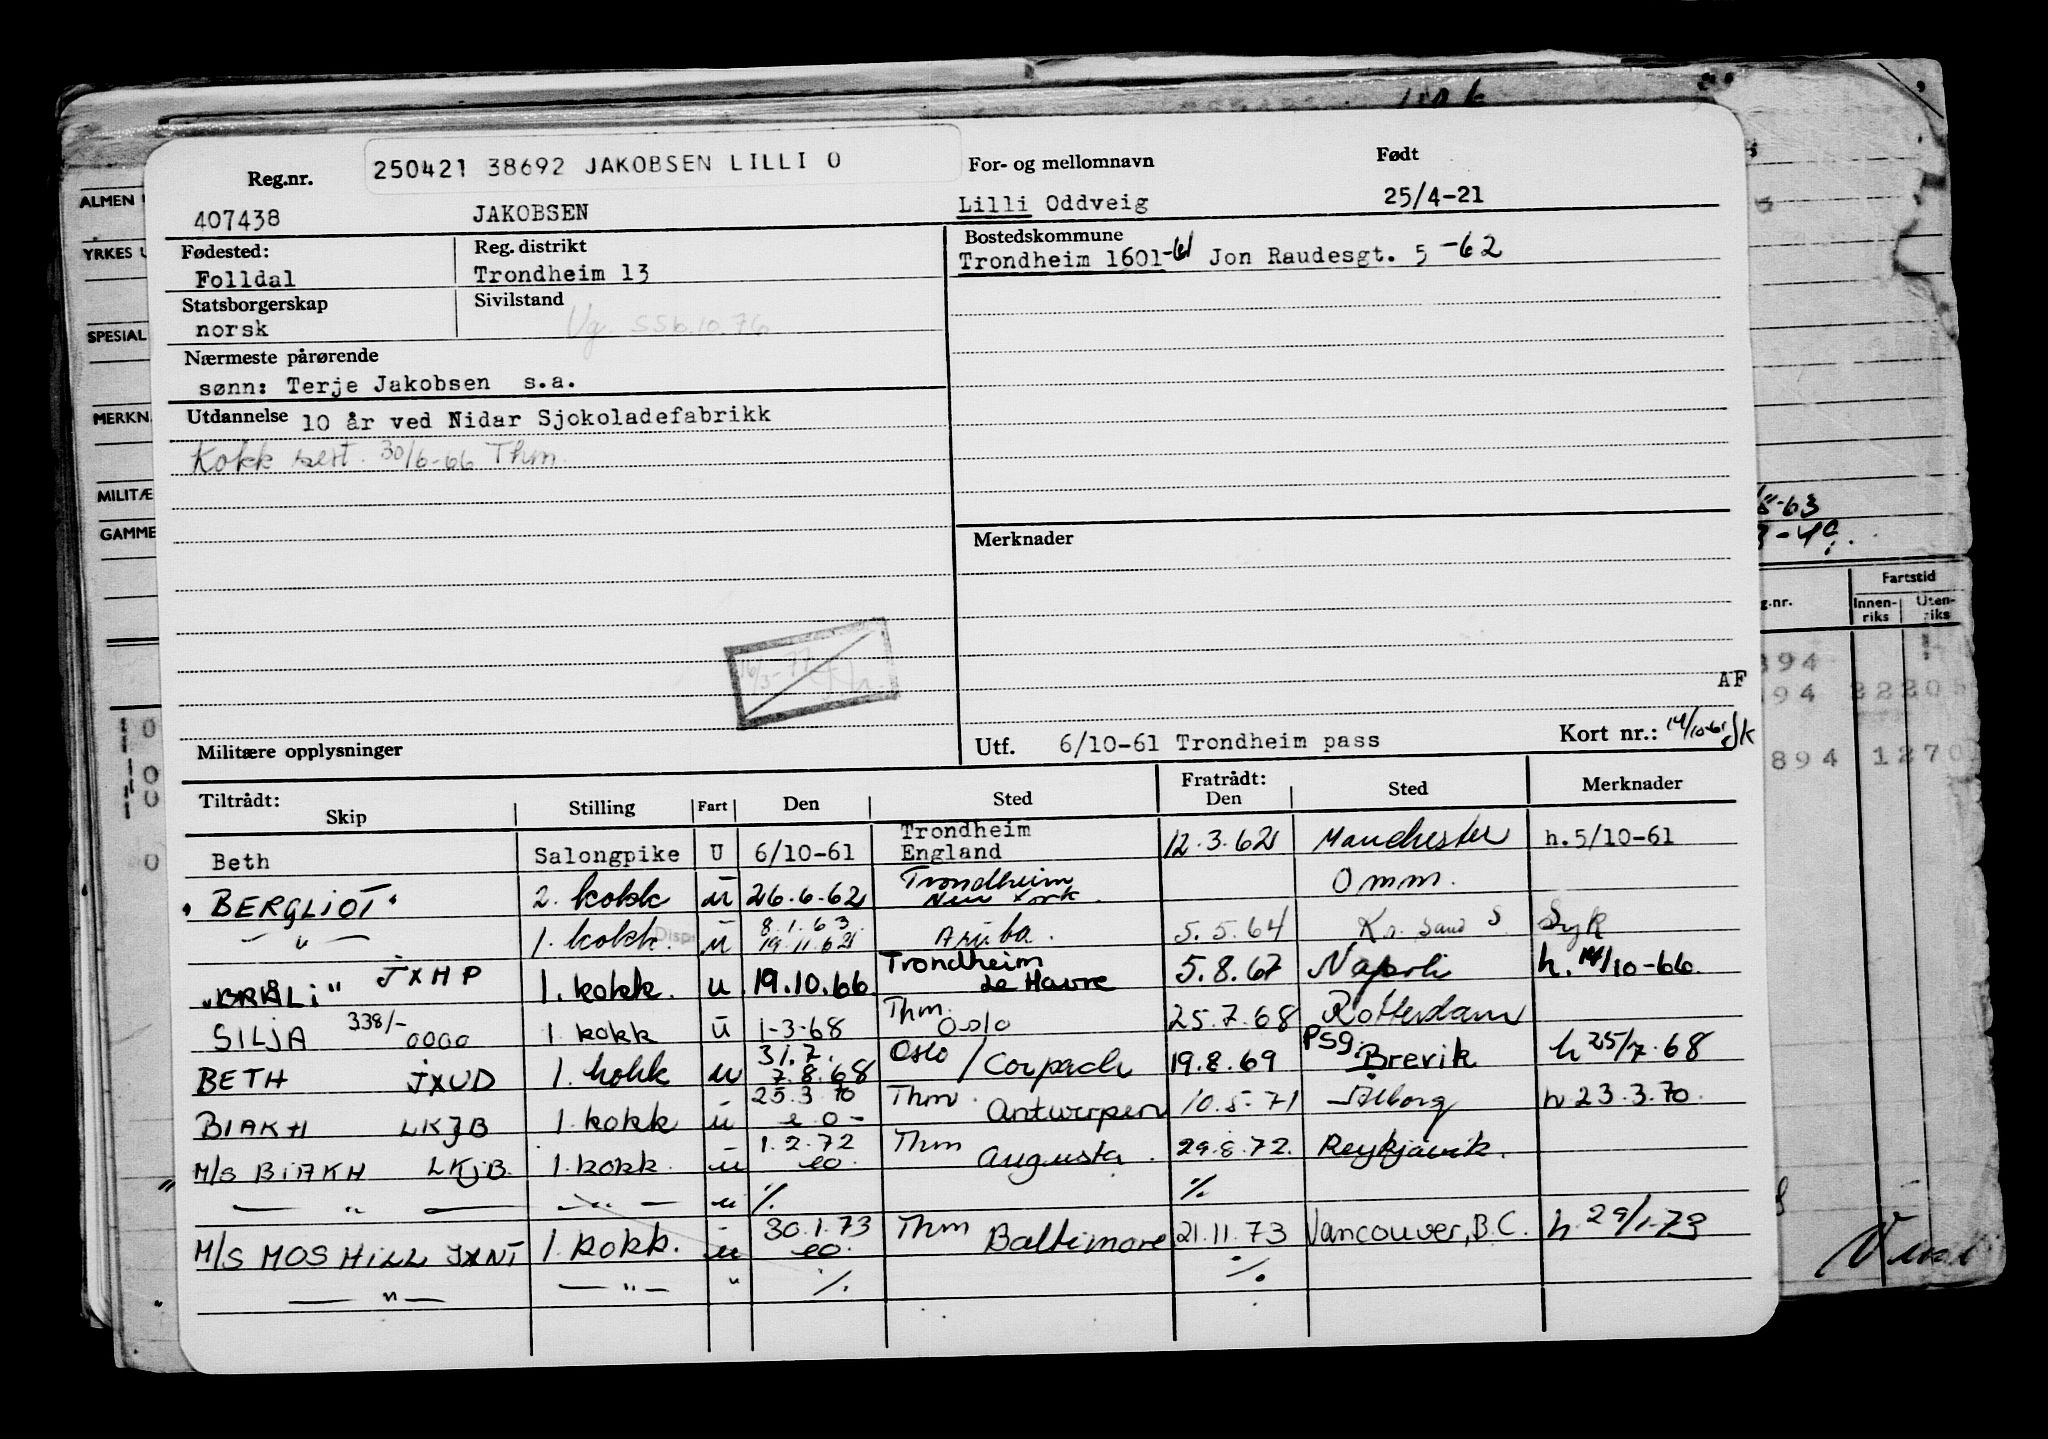 250421 38692 JAKOBSEN LILLI O
Reg.nr. For- og mellomnavn Født
407438 JAKOBSEN Lilli Oddveig 25/4-21
Fødested: Reg. distrikt Bostedskommune
Folldal Trondheim 13 Trondheim 1601-61 Jon Raudesgt. 5 -62
Statsborgerskap Sivilstand
norsk
Nærmeste pårørende
sønn: Terje Jakobsen s.a.
Utdannelse 10 år ved Nidar Sjokoladefabrikk
Kokk sert. 30/6-66 Thm.
Merknader
AF
Militære opplysninger Utf. 6/10-61 Trondheim pass Kort nr.: 14/10-61
Tiltrådt: Fratrådt:
Skip Stilling Fart Den Sted Den Sted Merknader
Beth Salongpike U 6/10-61 Trondheim England 12.3.62 Manchester h.5/10-61
"BERGLIOT" 2. kokk u 26.6.62 Trondheim New York Omm.
— " — 1. kokk. Disp u 8.1.63 19.11.62 Aruba. 5.5.64 Kr. sand S Syk
"BRÅLI" JXHP 1. kokk. u 19.10.66 Trondheim Le Havre 5.8.67 Napoli h. 14/10-66.
SILJA 338/- OOOO 1 kokk u 1-3-68 Thm. Oslo 25.7.68 Rotterdam
BETH JXUD 1. kokk u 31.7. 7.8.68 Oslo / Corpach 19.8.69 PSg. Brevik h 25/7.68
BIAKH LKJB 1. kokk u 25.3.70 e o - Thm. Antwerpen 10.5.71 Ålborg h 23.3.70.
M/S BIAKH LKJB. 1. kokk. u 1.2.72 eo. Thm Augusta. 29.8.72. Reykjavik.
— " — — " — u ./. ./.
M/S MOSHILL JXNT 1. kokk. u 30.1.73 eo. Thm Baltimore 21.11.73 Vancouver, B.C. h. 29/1-73
— " — — " — " ./. ./.
ALMEN
YRKES U
SPESIAL
MERKNA
MILITÆ
GAMME
Fartstid
g.nr. Innen-riks Uten-riks
894 1270